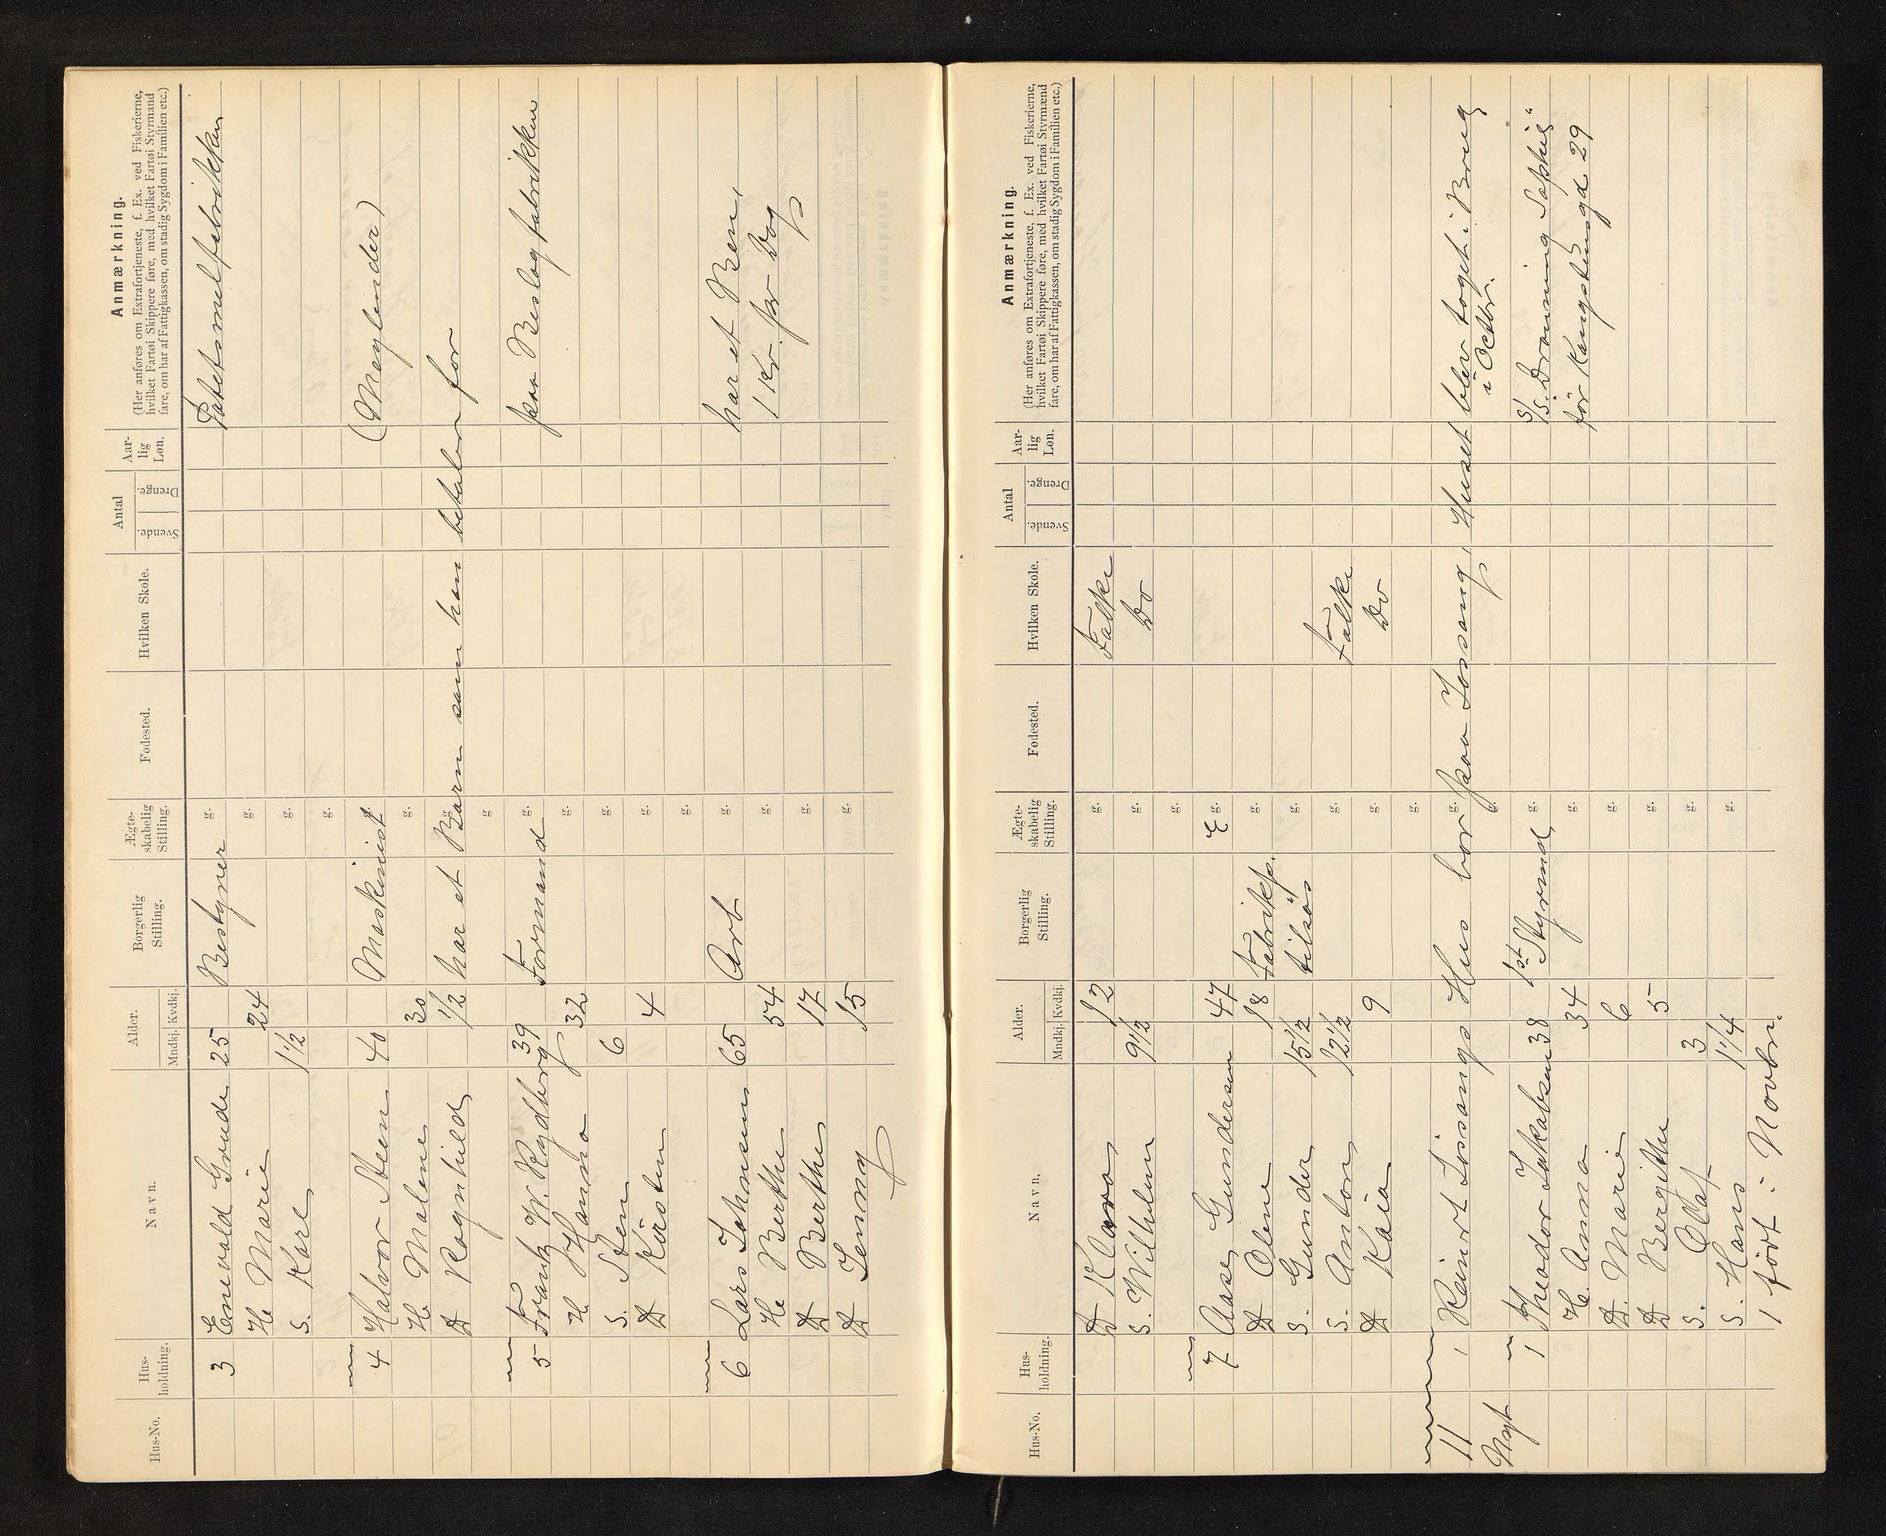 Hus-No. Hus-holdning. Navn. Alder. Mndkj. Kvdkj. Borgerlig Stilling. Ægte-skabelig Stilling. Fødested. Hvilken Skole. Antal Svende. Drenge. Aar-lig Løn. Anmærkning.
(Her anføres om Extrafortjeneste, f. Ex. ved Fiskerierne, hvilket Fartøi Skippere føre, med hvilket Fartøi Styrmænd fare, om har af Fattigkassen, om stadig Sygdom i Familien etc.)
3 Enevald Grude 25 Bestyrer g. Potetsmelfabrikken
H. Marie 24 g.
S. Karl 1 1/2 g.
g.
4 Halvor Steen 40 Maskinist g. (Meglender)
H. Malene 30 g.
D Ragnhild 1/2 har et Barn som han betaler for
g.
5 Frantz W. Rydberg 39 Formand g. paa Beslagfabrikken
H. Hanna 32 g.
S. Sten 6 g.
D Kirsten 4 g.
g.
6 Lars Johnsen 65 Arb g. har et Ben,
H. Berthe 54 g. 1 Kr. pr Dag
D Berthe 17 g.
D Jenny 15 g.
Hus-No. Hus-holdning. Navn. Alder. Mndkj. Kvdkj. Borgerlig Stilling. Ægte-skabelig Stilling. Fødested. Hvilken Skole. Antal Svende. Drenge. Aar-lig Løn. Anmærkning.
(Her anføres om Extrafortjeneste, f. Ex. ved Fiskerierne, hvilket Fartøi Skippere føre, med hvilket Fartøi Styrmænd fare, om har af Fattigkassen, om stadig Sygdom i Familien etc.)
D Klara 12 g. Folke
S. Wilhelm 9 1/2 g. Do
g.
7 Aase Gundersen 47 E g.
D Olene 18 Fabrikp. g.
S. Gunder 15 1/2 tilsøs g.
S. Anton 12 1/2 g. Folke
D Kaia 9 g. Do
g.
11 1 Reinert Jøssangs Hus bor paa Jøssang, Huset blev taget i Brug
Nyt g. i Octbr.
1 Theodor Jakobsen 38 1st Styrmd g. S/s. "Dronning Sophie"
H. Anna 34 g. før Kongsteinsgd 29
D. Marie 6 g.
D Bergithe 5 g.
S. Olaf 3 g.
S. Hans 1 1/4 g.
1 født i Novbr.